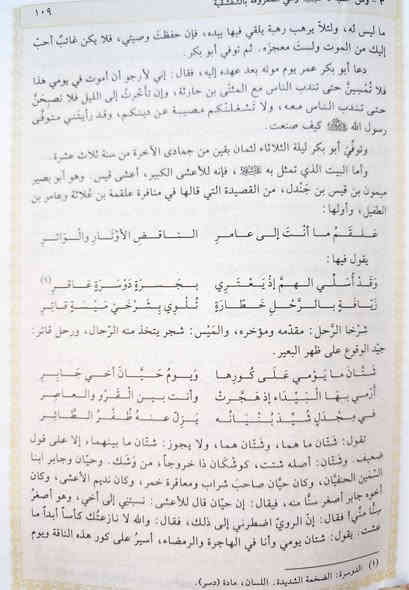 المعروفة بالشقشقية ١٠٩
ما ليس له، ولئلا يرهب رهبة يلقي فيها بيده، فإن حفظتَ وصيتي، فلا يكن غائبٌ أحبّ
إليك من الموت ولستَ معجزَه. ثم توفي أبو بكر.
دعا أبو بكر عمر يوم موته بعد عهده إليه، فقال: إني لأرجو أن أموت في يومي هذا
فلا تُمْسِيَنّ حتى تندب الناس مع المثنّى بن حارثة، وإن تأخّرتُ إلى الليل فلا تصبحَنّ
حتى تندب الناس معه، ولا تشغلنّكم مصيبة عن دينكم، وقد رأيتَني متوفَّى
رسول الله ﷺ كيف صنعت.
وتوفّي أبو بكر ليلة الثلاثاء لثمان بقين من جمادى الآخرة من سنة ثلاث عشرة.
وأما البيت الذي تمثل به ، فإنه للأعشى الكبير، أعشى قيس. وهو أبو بصير
ميمون بن قيس بن جَنْدل، من القصيدة التي قالها في منافرة علقمة بن عُلاثة وعامر بن
الطفيل، وأولها:
عَلْقَمُ ما أنْتَ إلى عامرٍ الناقضِ الأوْتَارِ والْوَاتِرِ
يقول فيها:
وَقَدْ أُسَلِّي الهمَّ إذْ يَعْتَرِي بجَسْرَةٍ دَوْسَرَةٍ عَاقِرِ(١)
زَيّافَةٍ بالرَّحْلِ خَطّارَةٍ تُلْوِي بشَرْخَيْ مَيْسَةٍ قاتِرِ
شرْخا الرَّحل: مقدّمه ومؤخره، والمَيْس: شجر يتخذ منه الرّحال، ورحل قاتر:
جيّد الوقوع على ظهر البعير.
شَتّانَ مَا يَوْمي عَلَى كُورِها وَيومُ حَيّانَ أخي جَابِرِ
أرْمي بها الْبَيْداءَ إذ هَجَّرَتْ وأنت بين الْقَرْوِ والعاصِرِ
في مِجْدَلٍ شُيِّدَ بُنْيَانُه يَزِلُّ عنهُ ظُفُرُ الطّائِرِ
تقول: شَتّان ما هما، وشَتّان هما، ولا يجوز: شتّان ما بينهما، إلا على قول
ضعيف. وشَتّان: أصله شتت، كوشْكان ذا خروجاً، من وَشُك. وحيّان وجابر ابنا
السّمين الحنفيّان، وكان حيّان صاحب شراب ومعاقرة خمر، وكان نديم الأعشى، وكان
أخوه جابر أصغر سنًّا منه، فيقال: إن حيّان قال للأعشى: نسبتَني إلى أخي، وهو أصغرُ
سنًّا منّي! فقال: إنّ الرويّ اضطرني إلى ذلك، فقال: والله لا نازعتُك كأساً أبداً ما
عشت. يقول: شتان يومي وأنا في الهاجرة والرمضاء، أسيرُ على كور هذه الناقة ويوم
(١) الدوسرة: الضخمة الشديدة. اللسان، مادة (دسر).